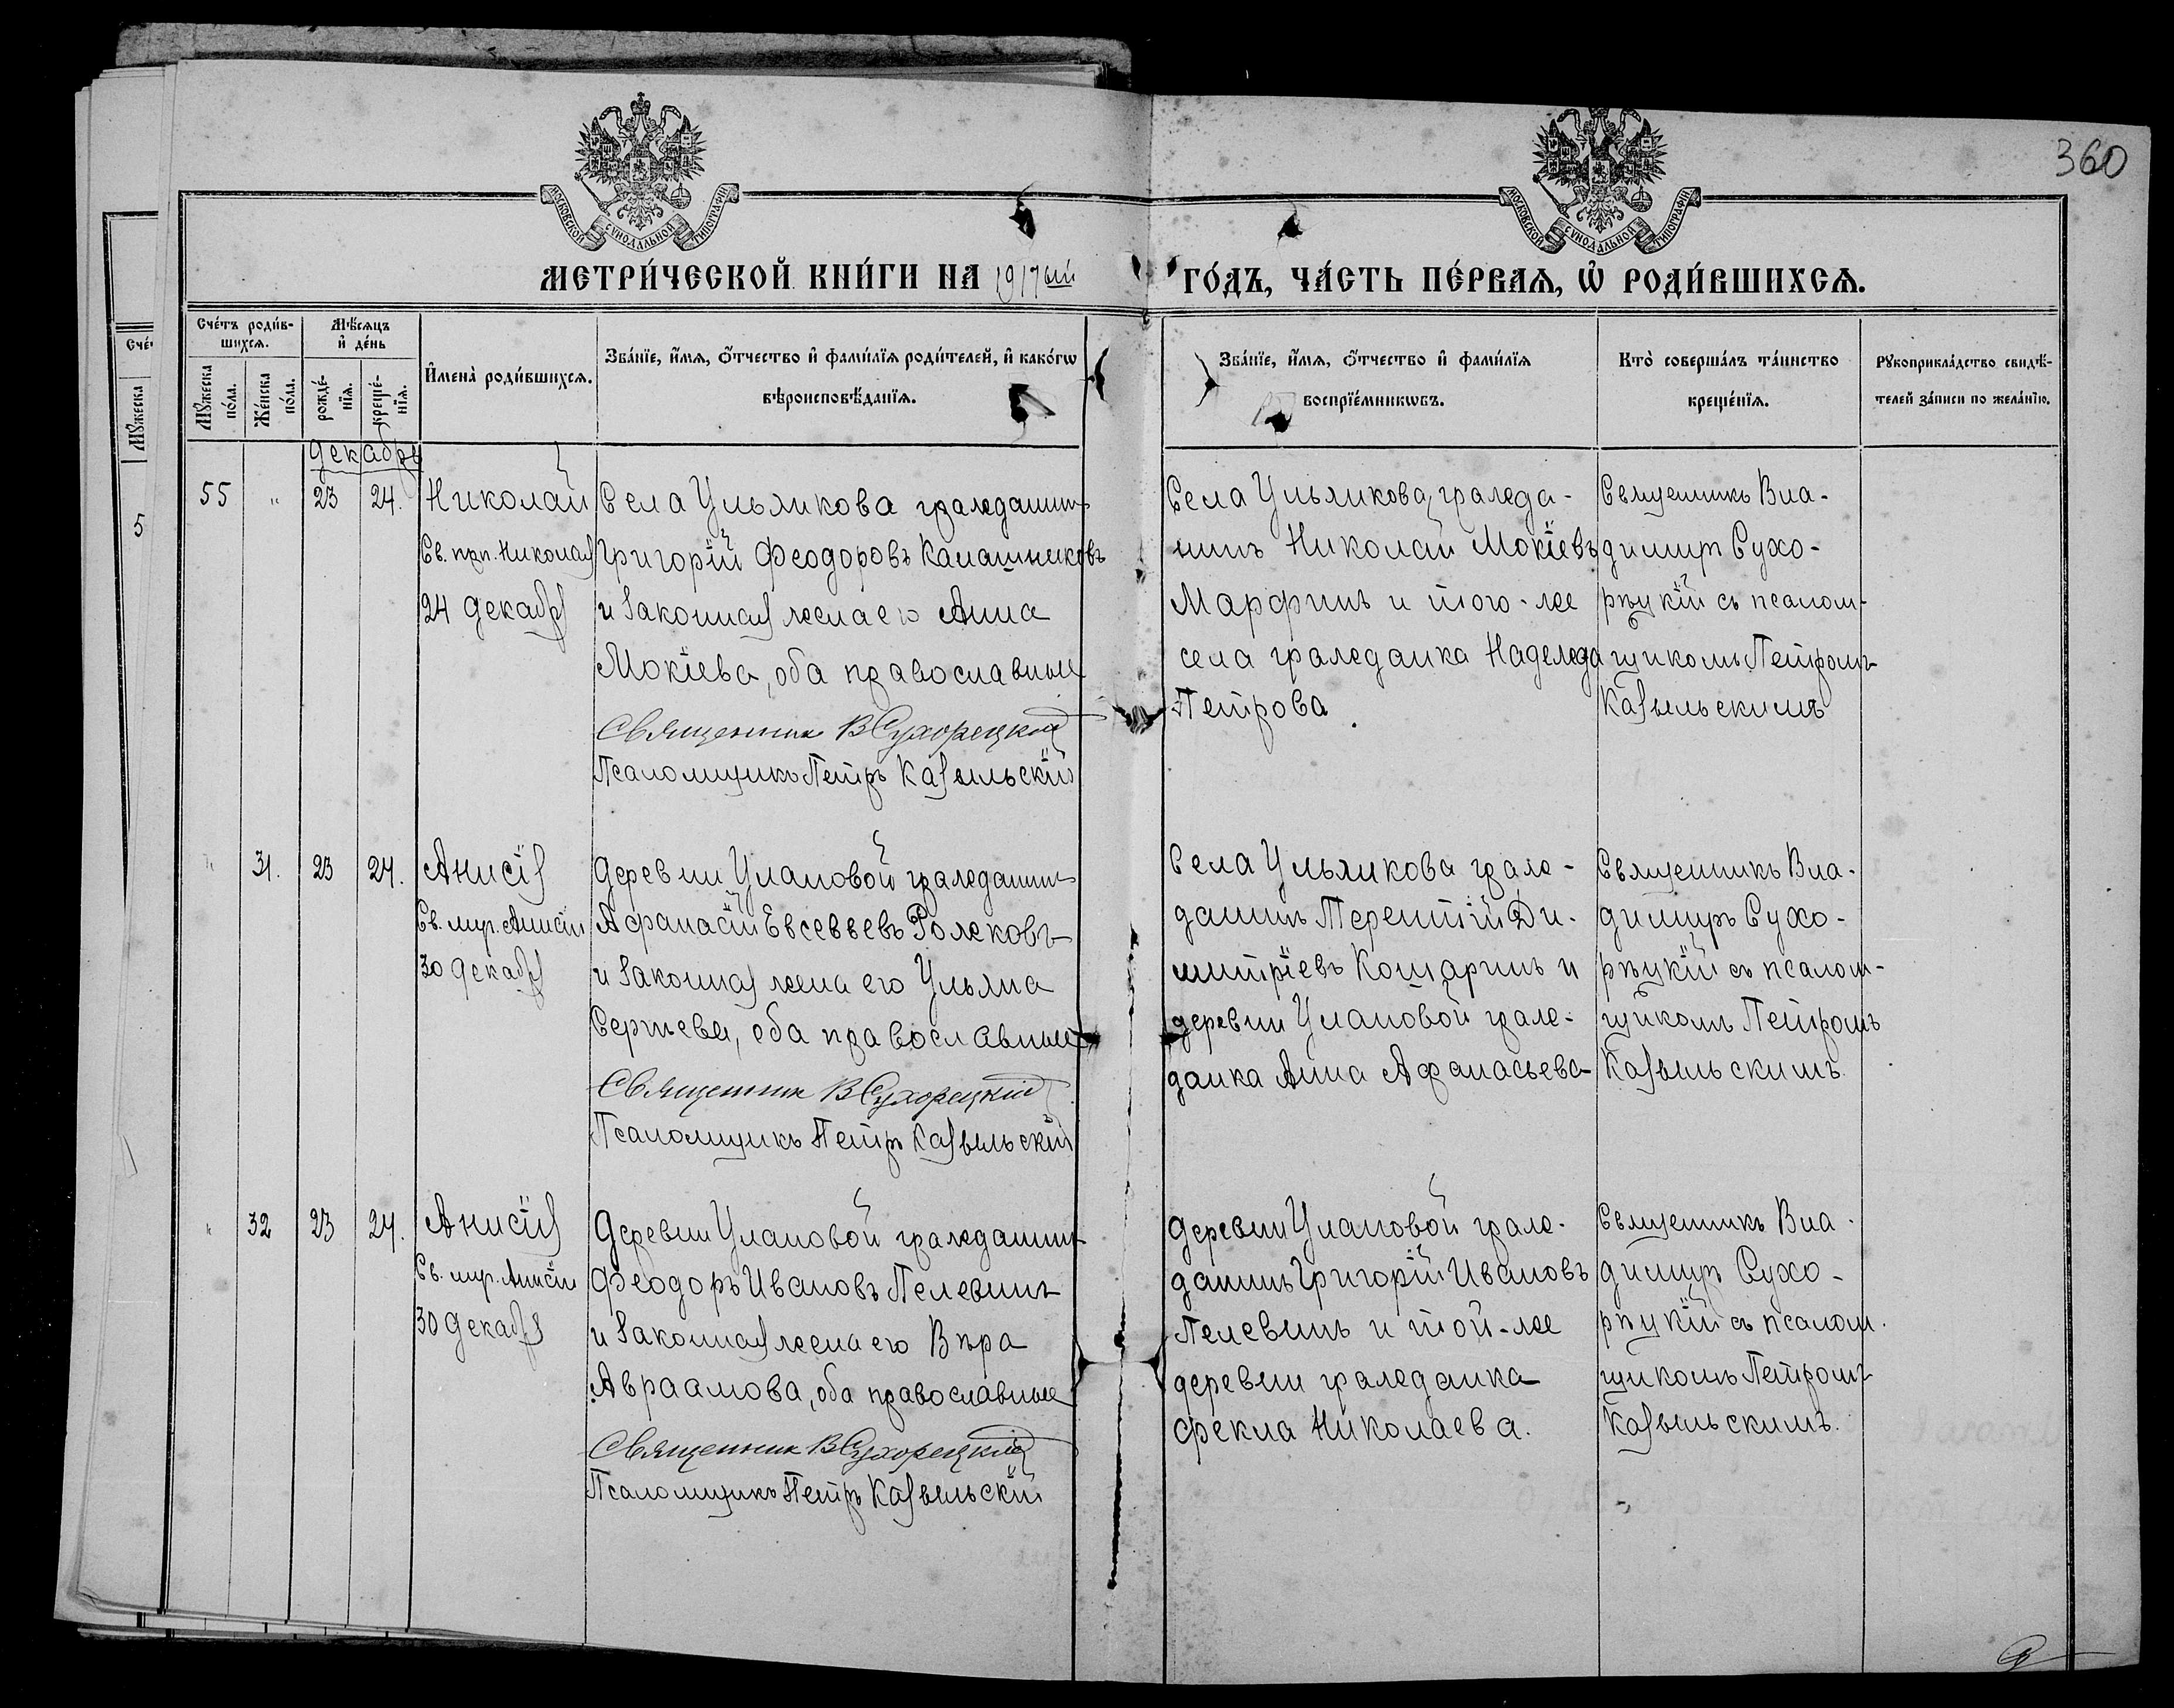 360
МОСКОВСКОЙ СѴНОДАЛЬНОЙ ТИПОГРАФІИ
МОСКОВСКОЙ СѴНОДАЛЬНОЙ ТИПОГРАФІИ
МЕТРИ́ЧЕСКОЙ КНИ́ГИ НА 1917ый
ГО́ДЪ, ЧА́СТЬ ПЕ́РВАЯ, Ѡ РОДИ́ВШИХСЯ.
Сче́тъ роди́в-
шихся.
Мꙋжеска по́ла.
Же́нска по́ла.
Мѣ́сяцъ
и҆ де́нь
рожде́-
нїя.
креще́-
нїя.
И҆мена̀ роди́вшихся.
Зва́нїе, и҆́мя, ѻ҆́тчество и҆ фами́лїя роди́телей, и҆ како́гѡ
вѣроисповѣ́данїя.
Зва́нїе, и҆́мя, ѻ҆́тчество и҆ фами́лїя
воспрїе́мникѡвъ.
Кто̀ соверша́лъ та́инство
креще́нїя.
Рꙋкоприкла́дство свидѣ́-
телей за́писи по жела́нїю.
Сче́т
Мꙋжеска
5
Декабря
55 " 23 24.
Николай
Св. прп. Николая
24 декабря
Села Ульянкова гражданинъ
Григорій Феодоровъ Калашниковъ
и законная жена его Анна
Мокіева, оба православные
Священник В Сухорецкій
Псаломщикъ Петръ Казыльскій
Села Ульянкова, гражда-
нинъ Николай Мокіевъ
Марфинъ и того-же
села гражданка Надежда
Петрова
Священникъ Вла-
димиръ Сухо-
рѣцкій съ псалом-
щикомъ Петромъ
Казыльскимъ
" 31. 23 24.
Анисія
Св. мур. Анисіи
30 декабря
Деревни Улановой гражданинъ
Афанасій Евсевьевъ Рожковъ
и законная жена его Ульяна
Сергѣева, оба православные
Священник В Сухорецкій
Псаломщикъ Петръ Казыльскій
Села Ульянкова граж-
данинъ Терентій Ди-
митріевъ Кошаринъ и
деревни Улановой граж-
данка Анна Афанасьева
Священникъ Вла-
димиръ Сухо-
рѣцкій съ псалом-
щикомъ Петромъ
Казыльскимъ
" 32 23 24.
Анисія
Св. мур. Анисіи
30 декабря
Деревни Улановой гражданинъ
Феодоръ Ивановъ Пелевинъ
и законная жена его Вѣра
Авраамова, оба православные
Священник В Сухорецкій
Псаломщикъ Петръ Казыльскій
Деревни Улановой граж-
данинъ Григорій Ивановъ
Пелевинъ и той-же
деревни гражданка
Фекла Николаева.
Священникъ Вла-
димиръ Сухо-
рѣцкій съ псалом-
щикомъ Петромъ
Казыльскимъ.